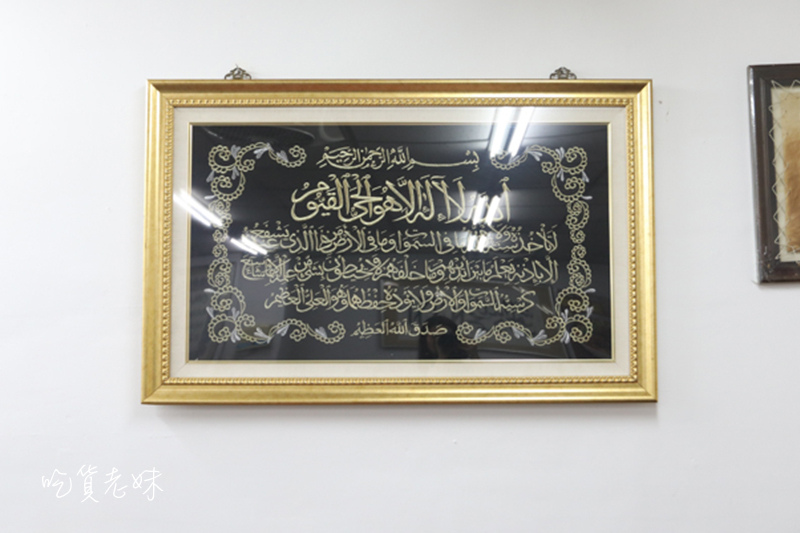 بسم الله الرحمن الرحيم
الله لا إله إلا هو الحي القيوم
لا تأخذه سنة السموات وما في الأرض من ذا الذي يشفع
إلا بإذنه يعلم ما بين أيديهم وما خلفهم ولا يحيطون بشيء من علمه إلا بما شاء وسع
كرسيه السموات والأرض ولا يؤده حفظهما وهو العلي العظيم
صدق الله العظيم
吃貨老妹